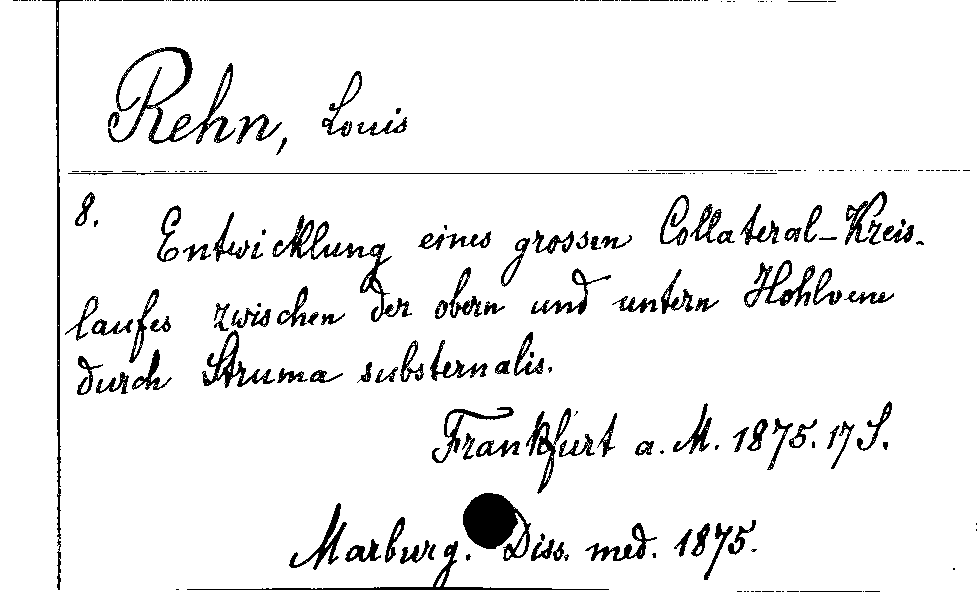 Rehn, Louis
8.
Entwicklung eines grossen Collateral-Kreis-
laufes zwischen der obern und untern Hohlvene
durch Struma substernalis.
Frankfurt a. M. 1875. 17 S.
Marburg. Diss. med. 1875.